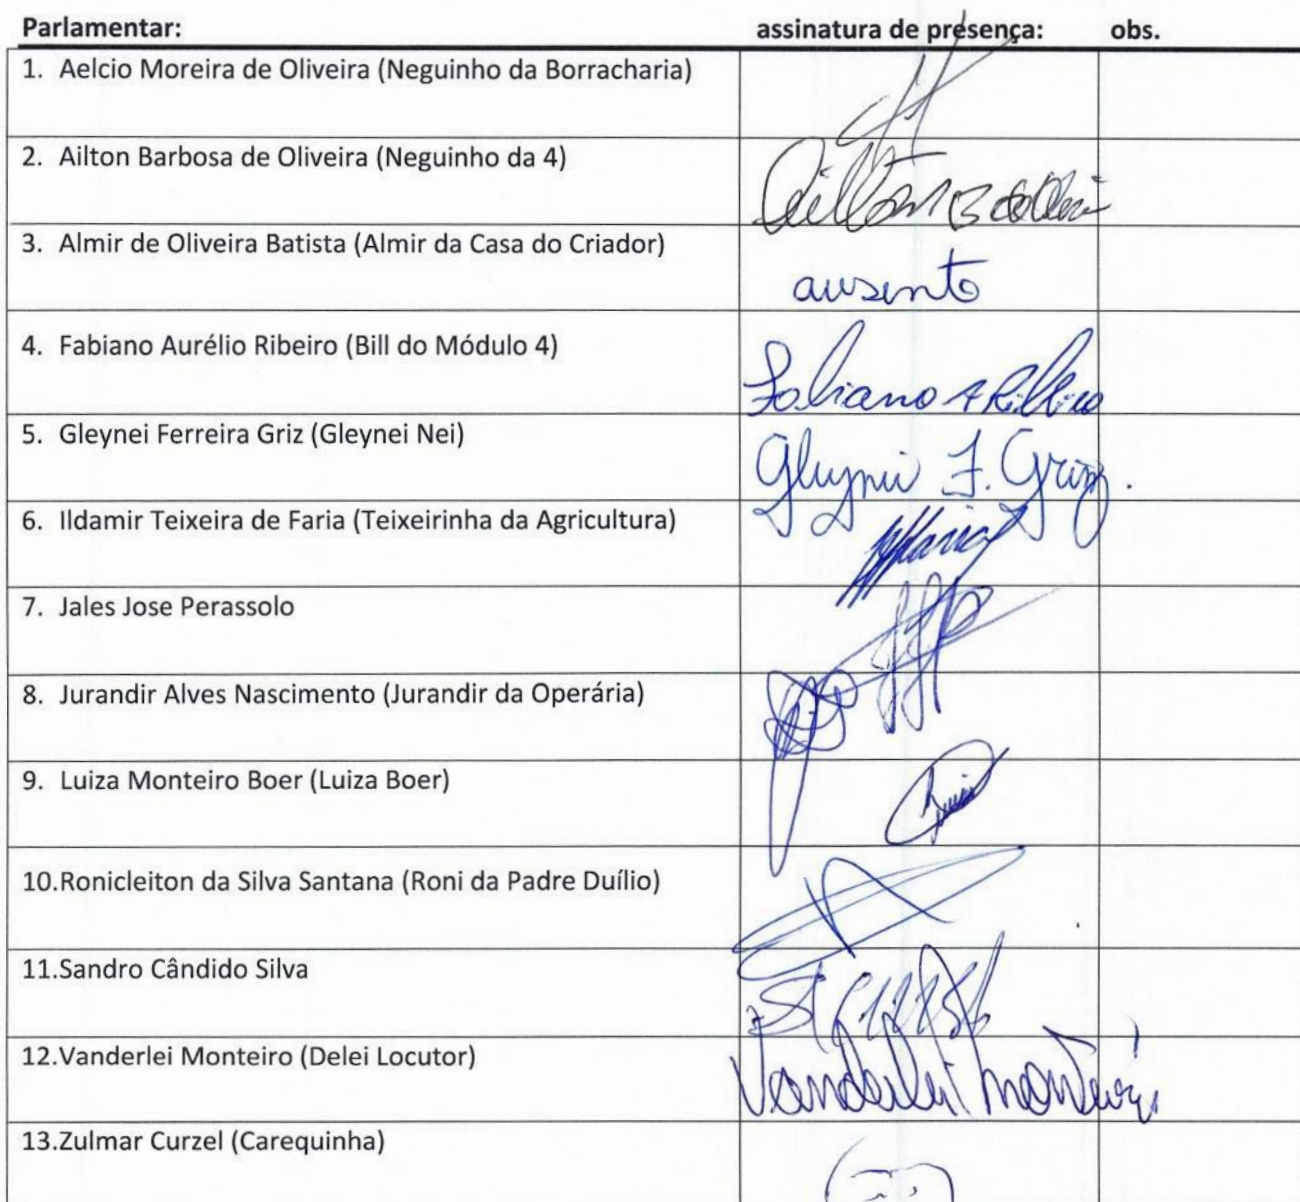 Parlamentar: assinatura de presença: obs.
1. Aelcio Moreira de Oliveira (Neguinho da Borracharia)
2. Ailton Barbosa de Oliveira (Neguinho da 4) Ailton B de Olivei
3. Almir de Oliveira Batista (Almir da Casa do Criador) ausente
4. Fabiano Aurélio Ribeiro (Bill do Módulo 4) Fabiano A Ribeiro
5. Gleynei Ferreira Griz (Gleynei Nei) Gleynei F. Griz.
6. Ildamir Teixeira de Faria (Teixeirinha da Agricultura)
7. Jales Jose Perassolo
8. Jurandir Alves Nascimento (Jurandir da Operária)
9. Luiza Monteiro Boer (Luiza Boer)
10.Ronicleiton da Silva Santana (Roni da Padre Duílio)
11.Sandro Cândido Silva
12.Vanderlei Monteiro (Delei Locutor) Vanderlei Monteiro
13.Zulmar Curzel (Carequinha)